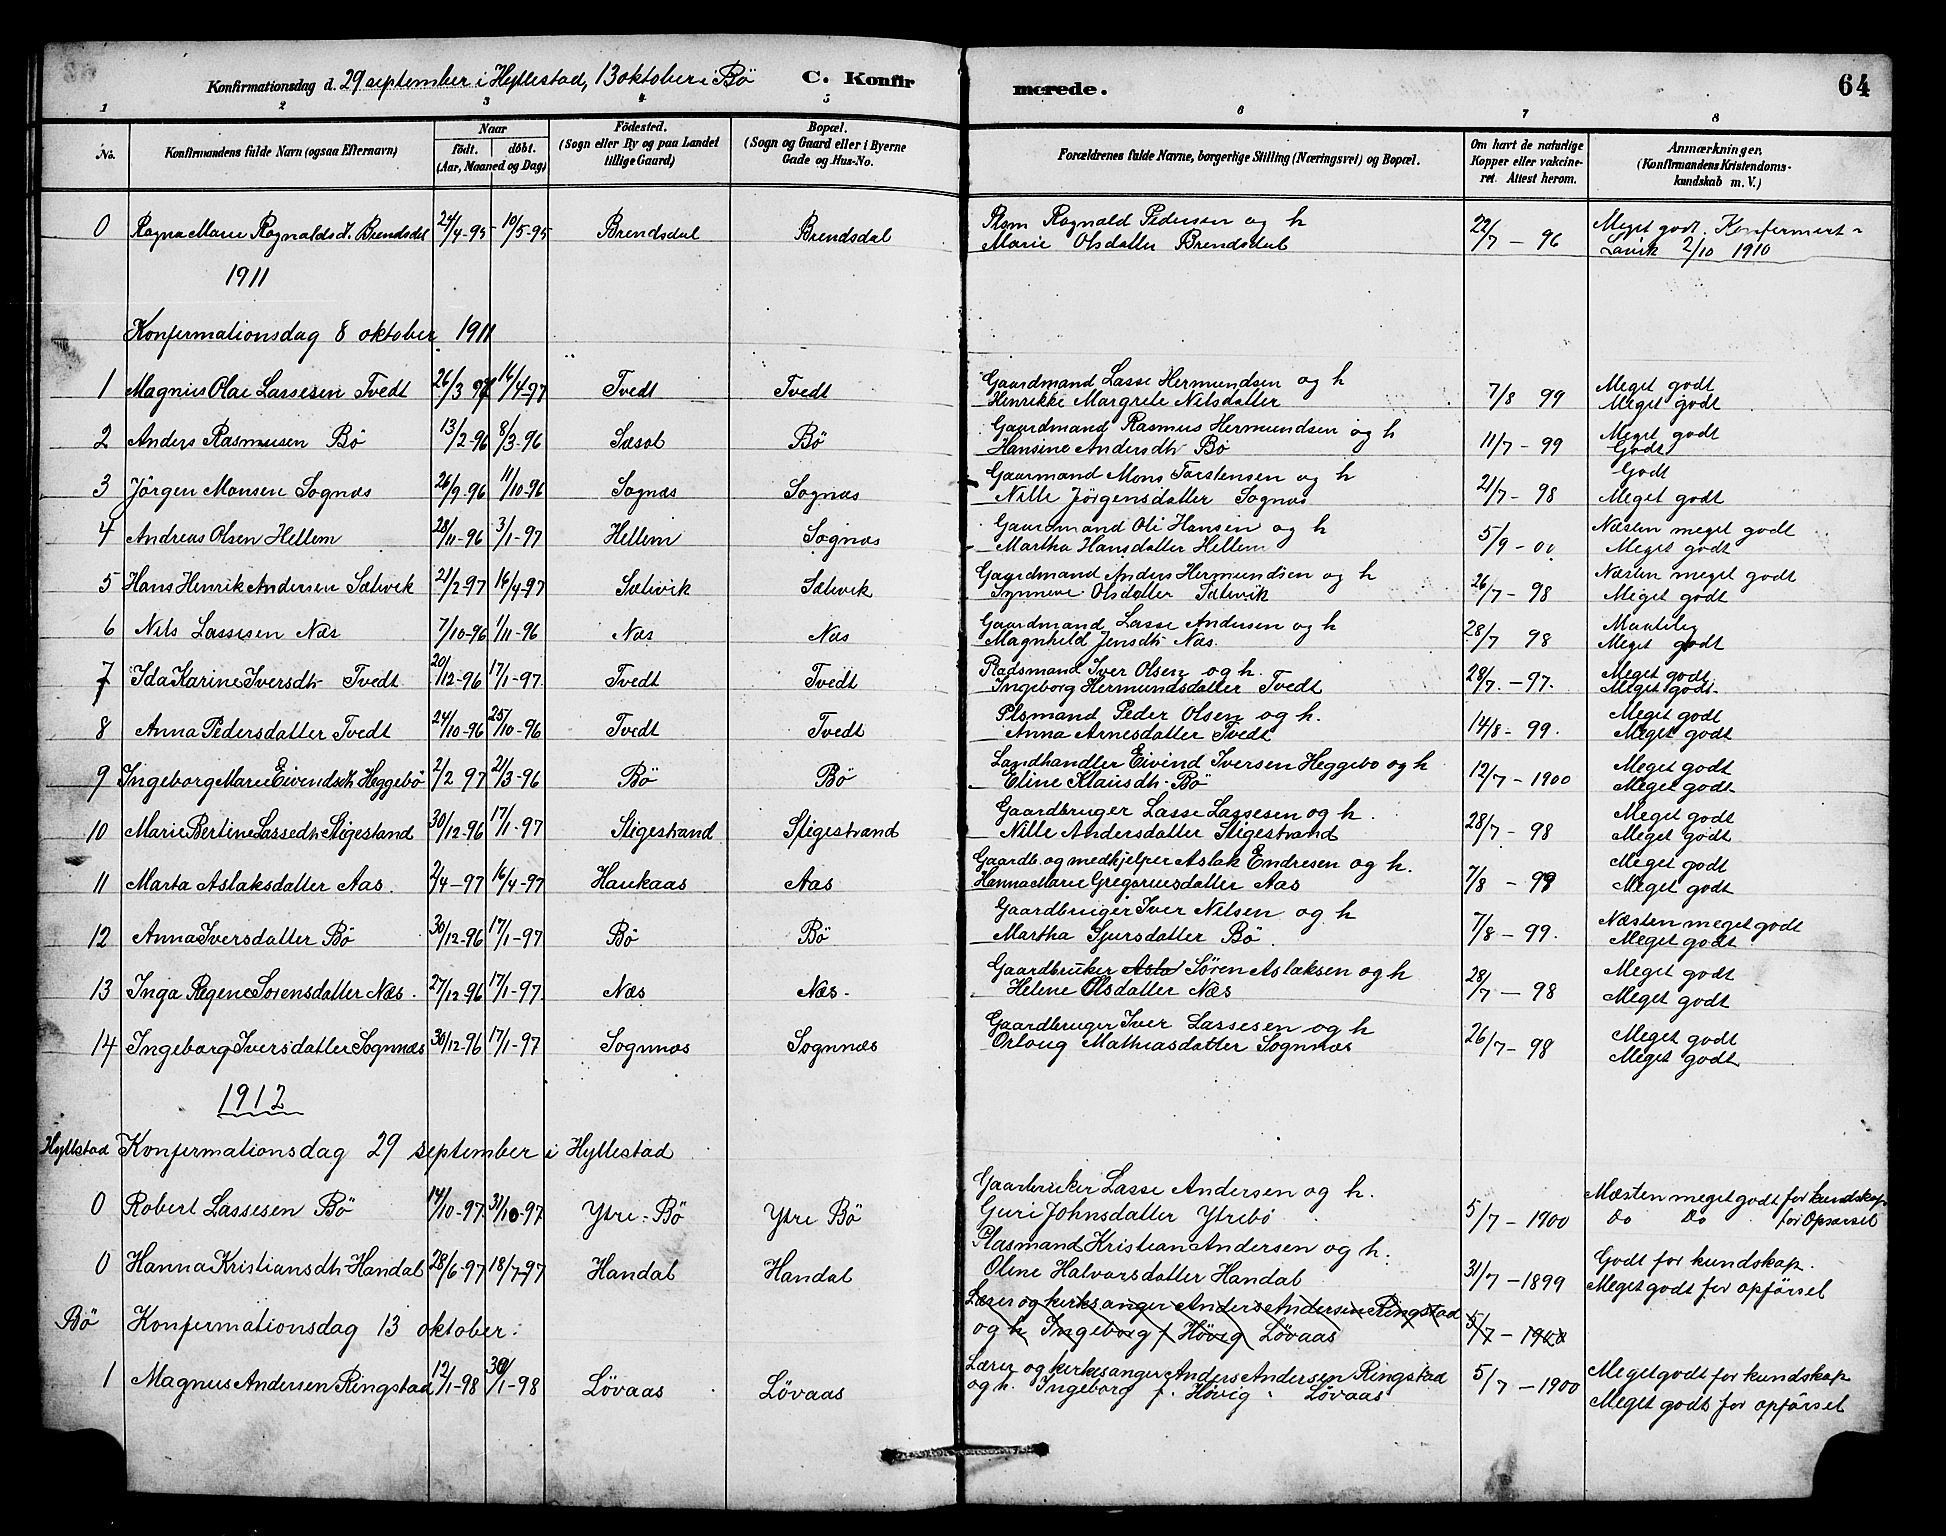 Konfirmationsdag d. 29 september i Hyllestad, 13 oktober i Bö C. Konfirmerede. 64
1 2 3 4 5 6 7 8
No. Konfirmandens fulde Navn (ogsaa Efternavn) Naar födt. döbt. (Aar, Maaned og Dag) Födested. (Sogn eller By og paa Landet tillige Gaard) Bopæl. (Sogn og Gaard eller i Byerne Gade og Hus-No. Forældrenes fulde Navne, borgerlige Stilling (Næringsvei) og Bopæl. Om havt de naturlige Kopper eller vakcineret. Attest herom. Anmærkninger. (Konfirmandens Kristendomskundskab m. V.)
0 Ragna Marie Ragnaldsd. Brendsdal 24/4-95 19/5-95 Brendsdal Brendsdal Plsm Ragnald Pedersen og h 22/7 - 96 Meget godt. Konfermert i
Marie Olsdatter Brendsdal Lavik 2/10 1910
1911
Konfermationsdag 8 oktober 1911
1 Magnus Olai Lassesen Tvedt 26/3 97 16/4-97 Tvedt Tvedt Gaardmand Lasse Hermundsen og h 7/8 99 Meget godt
Henrikke Margrete Nilsdatter Meget godt
2 Anders Rasmusen Bö 13/2-96 8/3-96 Sæsol Bö Gaardmand Rasmus Hermundsen og h 11/7-99 Meget godt
Hansine Andersdtr Bö Godt
3 Jörgen Monsen Sognæs 26/9-96 11/10-96 Sognæs Sognæs Gaarmand Mons Torstensen og h 21/7-98 Godt
Nille Jörgensdatter Sognæs Meget godt
4 Andreas Olsen Hellem 28/11-96 3/1-97 Hellem Sognæs Gaardmand Ole Hansen og h 5/9-00 Næsten meget godt
Martha Hansdatter Hellem Meget godt
5 Hans Henrik Andersen Sælevik 21/2-97 16/4-97 Sælevik Sælevik Gaardmand Anders Hermundsen og h 26/7-98 Næsten meget godt
Synneve Olsdatter Sælevik Meget godt
6 Nils Lassesen Næs 7/10-96 1/11-96 Næs Næs Gaardmand Lasse Andersen og h 28/7 98 Maatelig
Magnhild Jensdtr Næs Meget godt
7 Ida Karine Iversdtr Tvedt 20/12-96 17/1-97 Tvedt Tvedt Pladsmand Iver Olsen og h. 28/7-97. Meget godt
Ingeborg Hermundsdatter Tvedt Meget godt
8 Anna Pedersdatter Tvedt 24/10-96 25/10-96 Tvedt Tvedt Plsmand Peder Olsen og h. 14/8-99. Meget godt
Anna Arnesdatter Tvedt Meget godt
9 Ingeborg Marie Eivindsdtr Heggebö 2/2 97 21/3-96 Bö Bö Landhandler Eivind Iversen Heggebö og h 12/7-1900 Meget godt
Eline Klausdtr Bö Meget godt
10 Marie Bertine Lassedtr Stigestand 30/12-96 17/1-97 Stigestrand Stigestrand Gaardbruger Lasse Lassesen og h. 28/7-98 Meget godt
Nille Andersdatter Stigestrand Meget godt
11 Marta Aslaksdatter Aas. 2/4-97 16/4-97 Haukaas Aas Gaardb. og medhjelper Aslak Endresen og h. 7/8-99 Meget godt
Hanna Marie Gregoriusdatter Aas Meget godt
12 Anna Iversdatter Bö 30/12-96 17/1-97 Bö Bö Gaardbruger Iver Nilsen og h 7/8-99. Næsten meget godt
Martha Sjursdatter Bö. Meget godt
13 Inga Regene Sörensdatter Næs. 27/12-96 17/1-97 Næs Næs. Gaardbruker Asla Sören Aslaksen og h 28/7-98 Meget godt
Helene Olsdatter Næs Meget godt
14 Ingeborg Iversdatter Sognnæs 30/12-96 17/1-97 Sognnæs Sognnæs Gaardbruger Iver Lassesen og h 26/7-98 Meget godt
Orloug Mathiasdatter Sognnæs Meget godt
1912
Hyllstad Konfermationsdag 29 september i Hyllestad
0 Robert Lassesen Bö 14/10-97 31/10-97 Ytre-Bö Ytre Bö Gaarbruker Lasse Andersen og h. 5/7-1900 Næsten meget godt for kundskap
Guri Johnsdatter Ytrebö Do Do for Opförsel
0 Hanna Kristiansdtr Handal 28/6-97 18/7-97 Handal Handal Plasmand Kristian Andersen og h. 31/7-1899 Godt for kundskap.
Oline Halvarsdatter Handal Meget godt for opförsel
Bö Konfermationsdag 13 oktober. Lærer og kirksanger Anders Andersen Ringstad 5/7-1900
og h Ingeborg f. Hövig Lövaas
1 Magnus Andersen Ringstad 12/1-98 30/1-98 Lövaas Lövaas Lærer og kirkesanger Anders Andersen Ringstad 5/7-1900 Meget godt for kundskap
og h. Ingeborg f. Hövig Lövaas Meget godt for opförsel